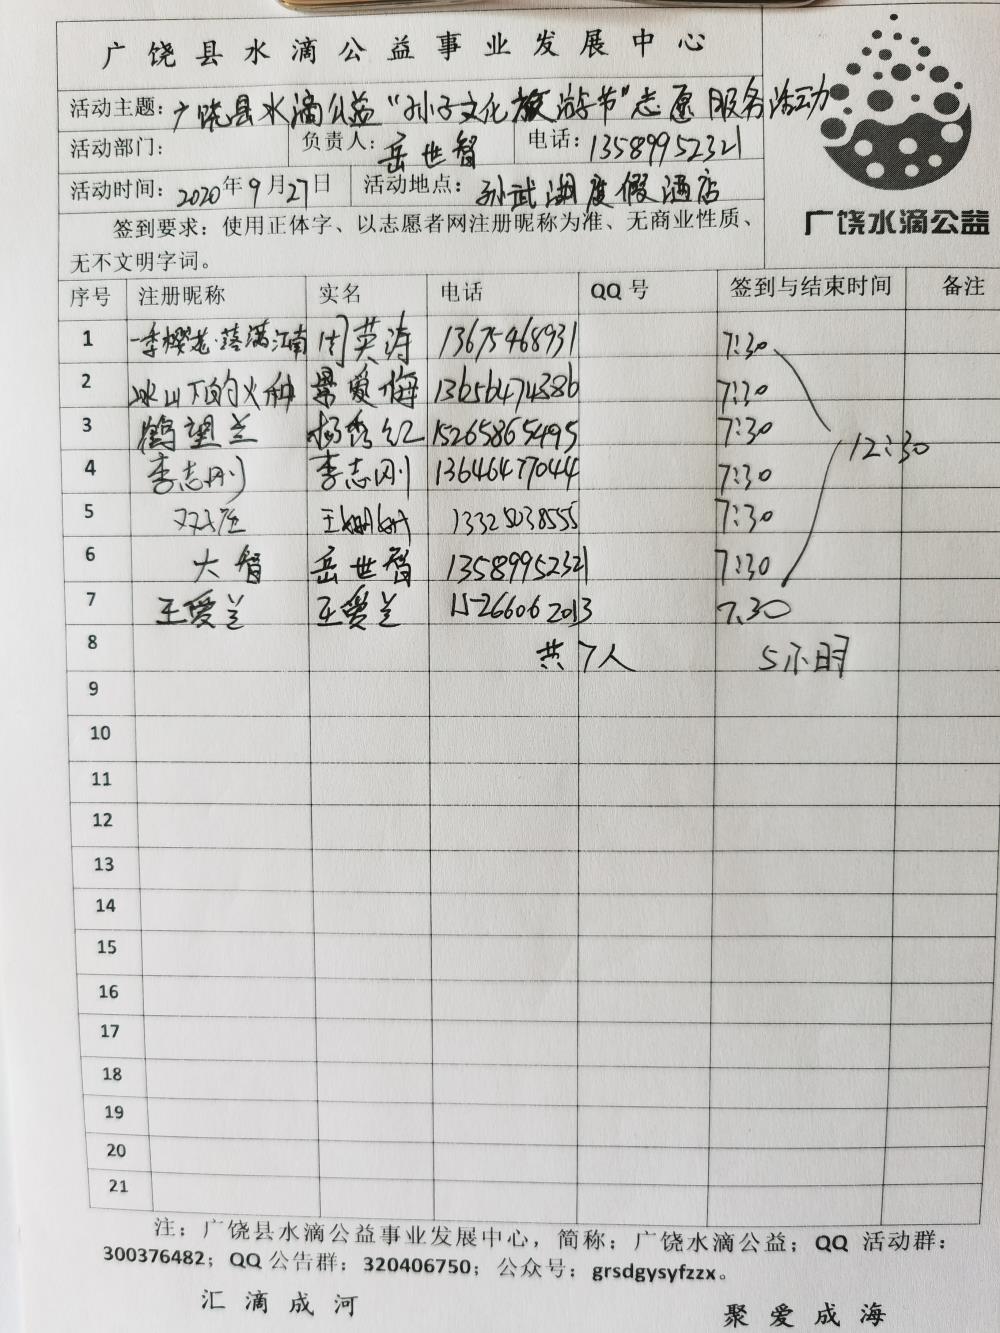 广饶县水滴公益事业发展中心
活动主题：广饶县水滴公益“孙子文化旅游节”志愿服务活动
活动部门： 负责人：岳世智 电话：13589952321
活动时间：2020年9月27日 活动地点：孙武湖度假酒店
广饶水滴公益
签到要求：使用正体字、以志愿者网注册昵称为准、无商业性质、
无不文明字词。
序号 注册昵称 实名 电话 QQ 号 签到与结束时间 备注
1 一季樱花·落满江南 周英涛 13675468931 7:30
2 冰山下的火种 爱梅 13656474386 7:30
3 鹤望兰 杨秀红 15265865495 7:30
12:30
4 李志刚 李志刚 13646477044 7:30
5 王姗姗 13325038555 7:30
6 大智 岳世智 13589952321 7:30
7 王爱兰 王爱兰 15266062013 7.30
8 共7人 5小时
9
10
11
12
13
14
15
16
17
18
19
20
21
注：广饶县水滴公益事业发展中心，简称：广饶水滴公益；QQ 活动群：
300376482；QQ 公告群：320406750；公众号：grsdgysyfzzx。
汇滴成河 聚爱成海